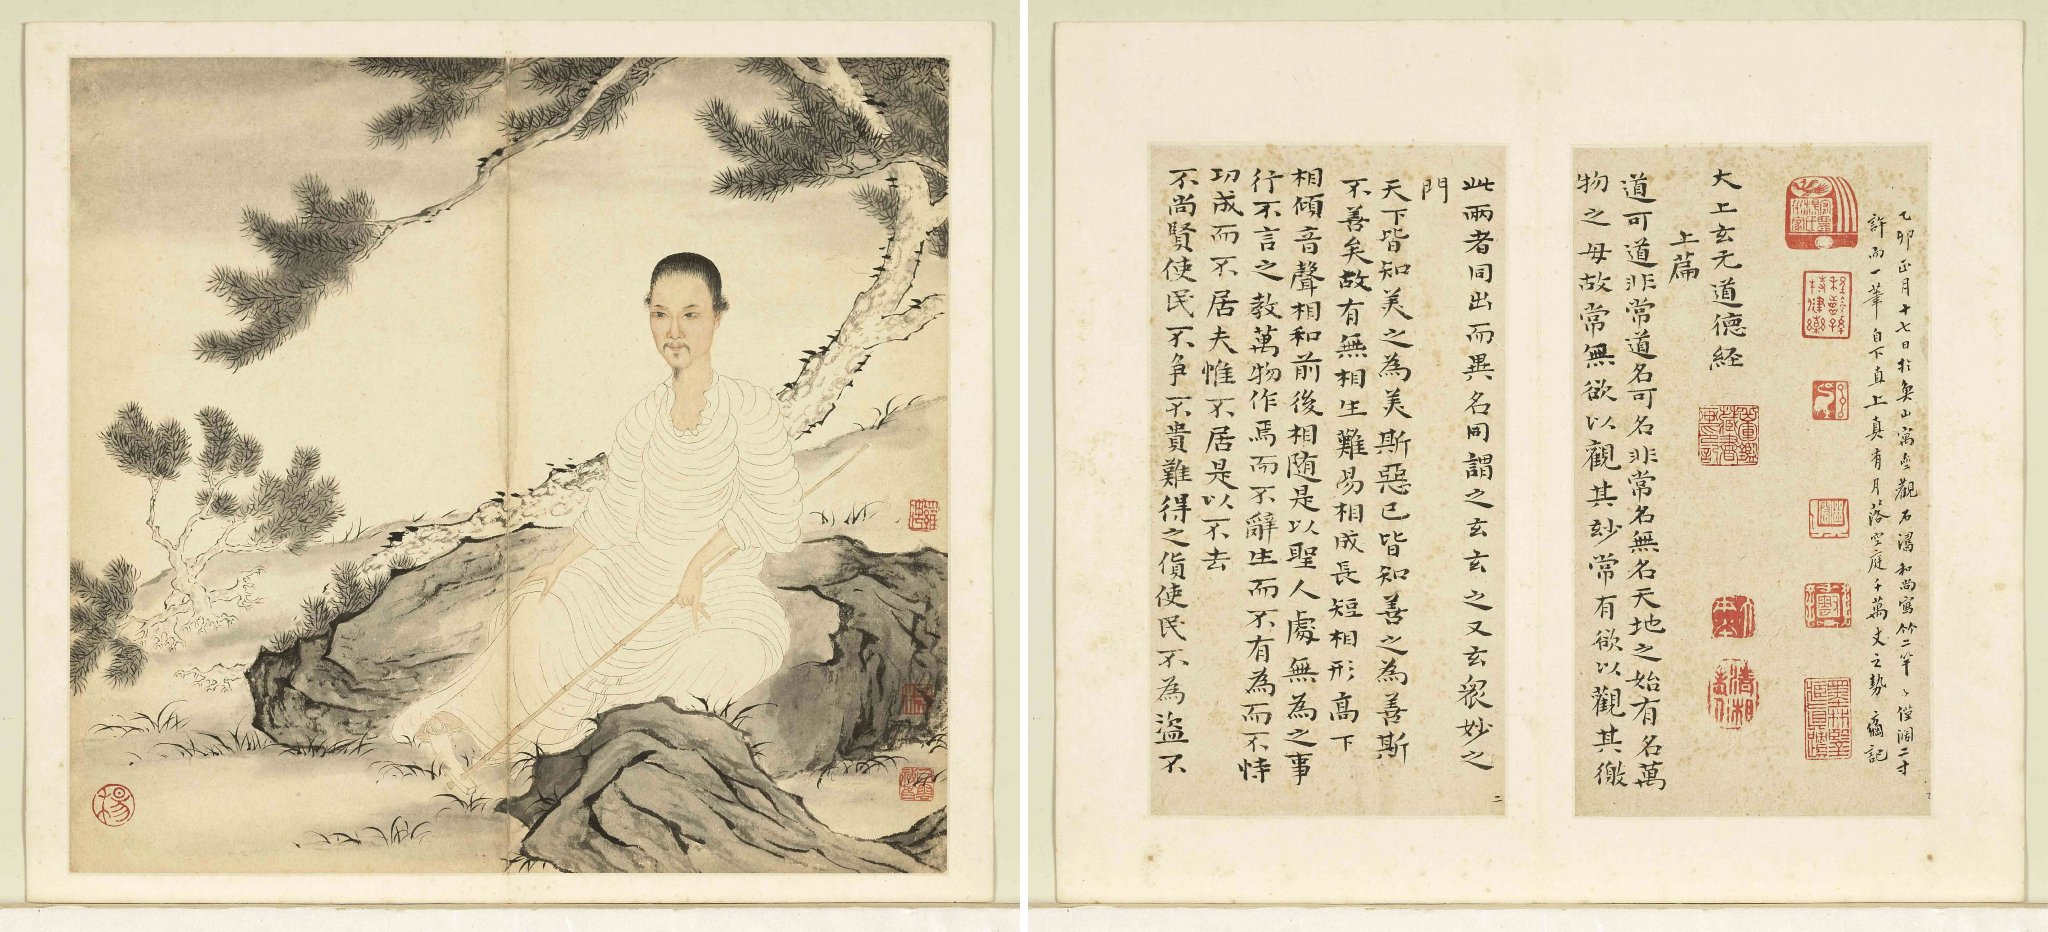 乙卯正月十七日於奐山寓壺觀石濤和尚寫竹二竿竿僅濶二寸
許而一筆自下直上真有月落空庭千萬丈之勢 癟記
大上玄元道德経
上篇
道可道非常道名可名非常名無名天地之始有名萬
物之母故常無欲以觀其妙常有欲以觀其徼
此兩者同出而異名同謂之玄玄之又玄衆妙之
門
天下皆知美之為美斯惡已皆知善之為善斯
不善矣故有無相生難易相成長短相形高下
相傾音聲相和前後相随是以聖人處無為之事
行不言之教萬物作焉而不辭生而不有為而不恃
功成而不居夫惟不居是以不去
不尚賢使民不争不貴難得之貨使民不為盗不
二
楊